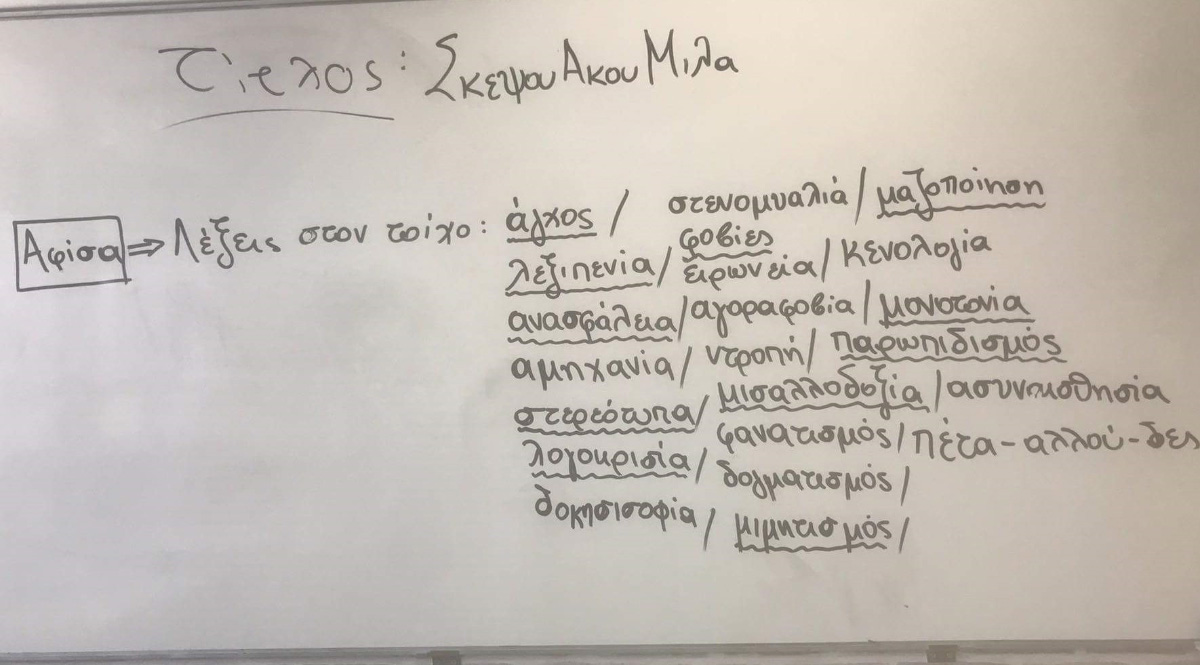 Τίτλος: ΣκεψουΑκουΜιλα
Αφίσα ⇒ Λέξεις στον τοίχο: άγχος / στενομυαλιά / μαζοποίηση
λεξιπενία / φοβίες / ειρωνεία / κενολογία
ανασφάλεια / αγοραφοβία / μονοτονία
αμηχανία / ντροπή / παρωπιδισμός
στερεότυπα / μισαλλοδοξία / ασυναισθησία
λογοκρισία / φανατισμός / πέτα-αλλού-δες
δοκησισοφία / δογματισμός /
μιμητισμός /